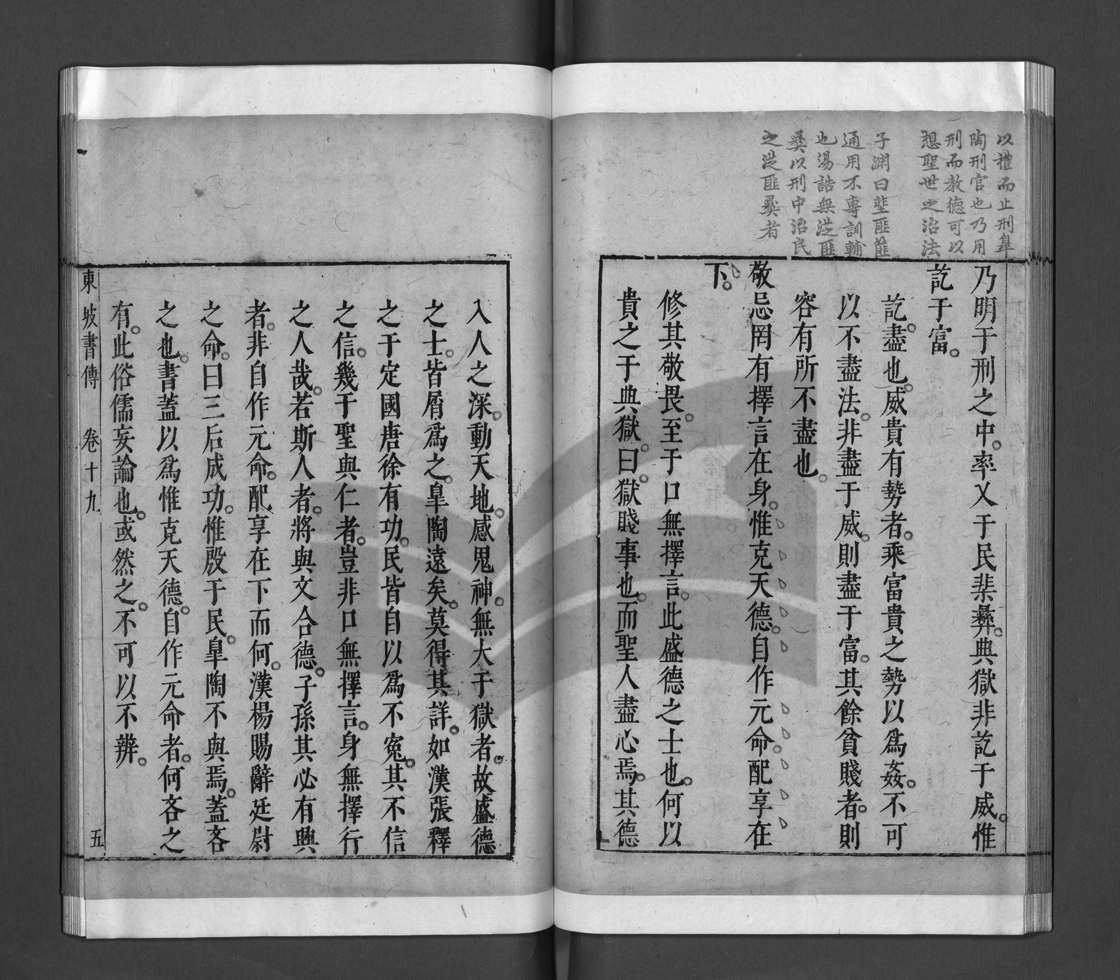 以禮而止刑臯
陶刑官也乃用
刑而教德可以
想聖世之治法
子淵曰棐匪篚
通用不專訓輔
也湯誥無從匪
彝以刑中治民
之從匪彝者
乃明于刑之中。率乂于民棐彝。典獄非訖于威。惟
訖于富。
訖。盡也。威貴有勢者。乘富貴之勢以爲姦。不可
以不盡法。非盡于威。則盡于富。其餘貧賤者。則
容有所不盡也。
敬忌罔有擇言在身。惟克天德。自作元命。配享在
下。
修其敬畏。至于口無擇言。此盛德之士也。何以
貴之于典獄。曰。獄賤事也。而聖人盡心焉。其德
入人之深。動天地。感鬼神。無大于獄者。故盛德
之士。皆屑爲之。臯陶遠矣。莫得其詳。如漢張釋
之于定國唐徐有功。民皆自以爲不寃。其不信
之信。幾于聖與仁者。豈非口無擇言。身無擇行
之人哉。若斯人者。將與文合德。子孫其必有興
者。非自作元命。配享在下而何。漢楊賜辭廷尉
之命。曰三后成功。惟殷于民。臯陶不與焉。蓋吝
之也。書蓋以爲惟克天德。自作元命者。何吝之
有。此俗儒妄論也。或然之。不可以不辨。
東坡書傳 卷十九 五